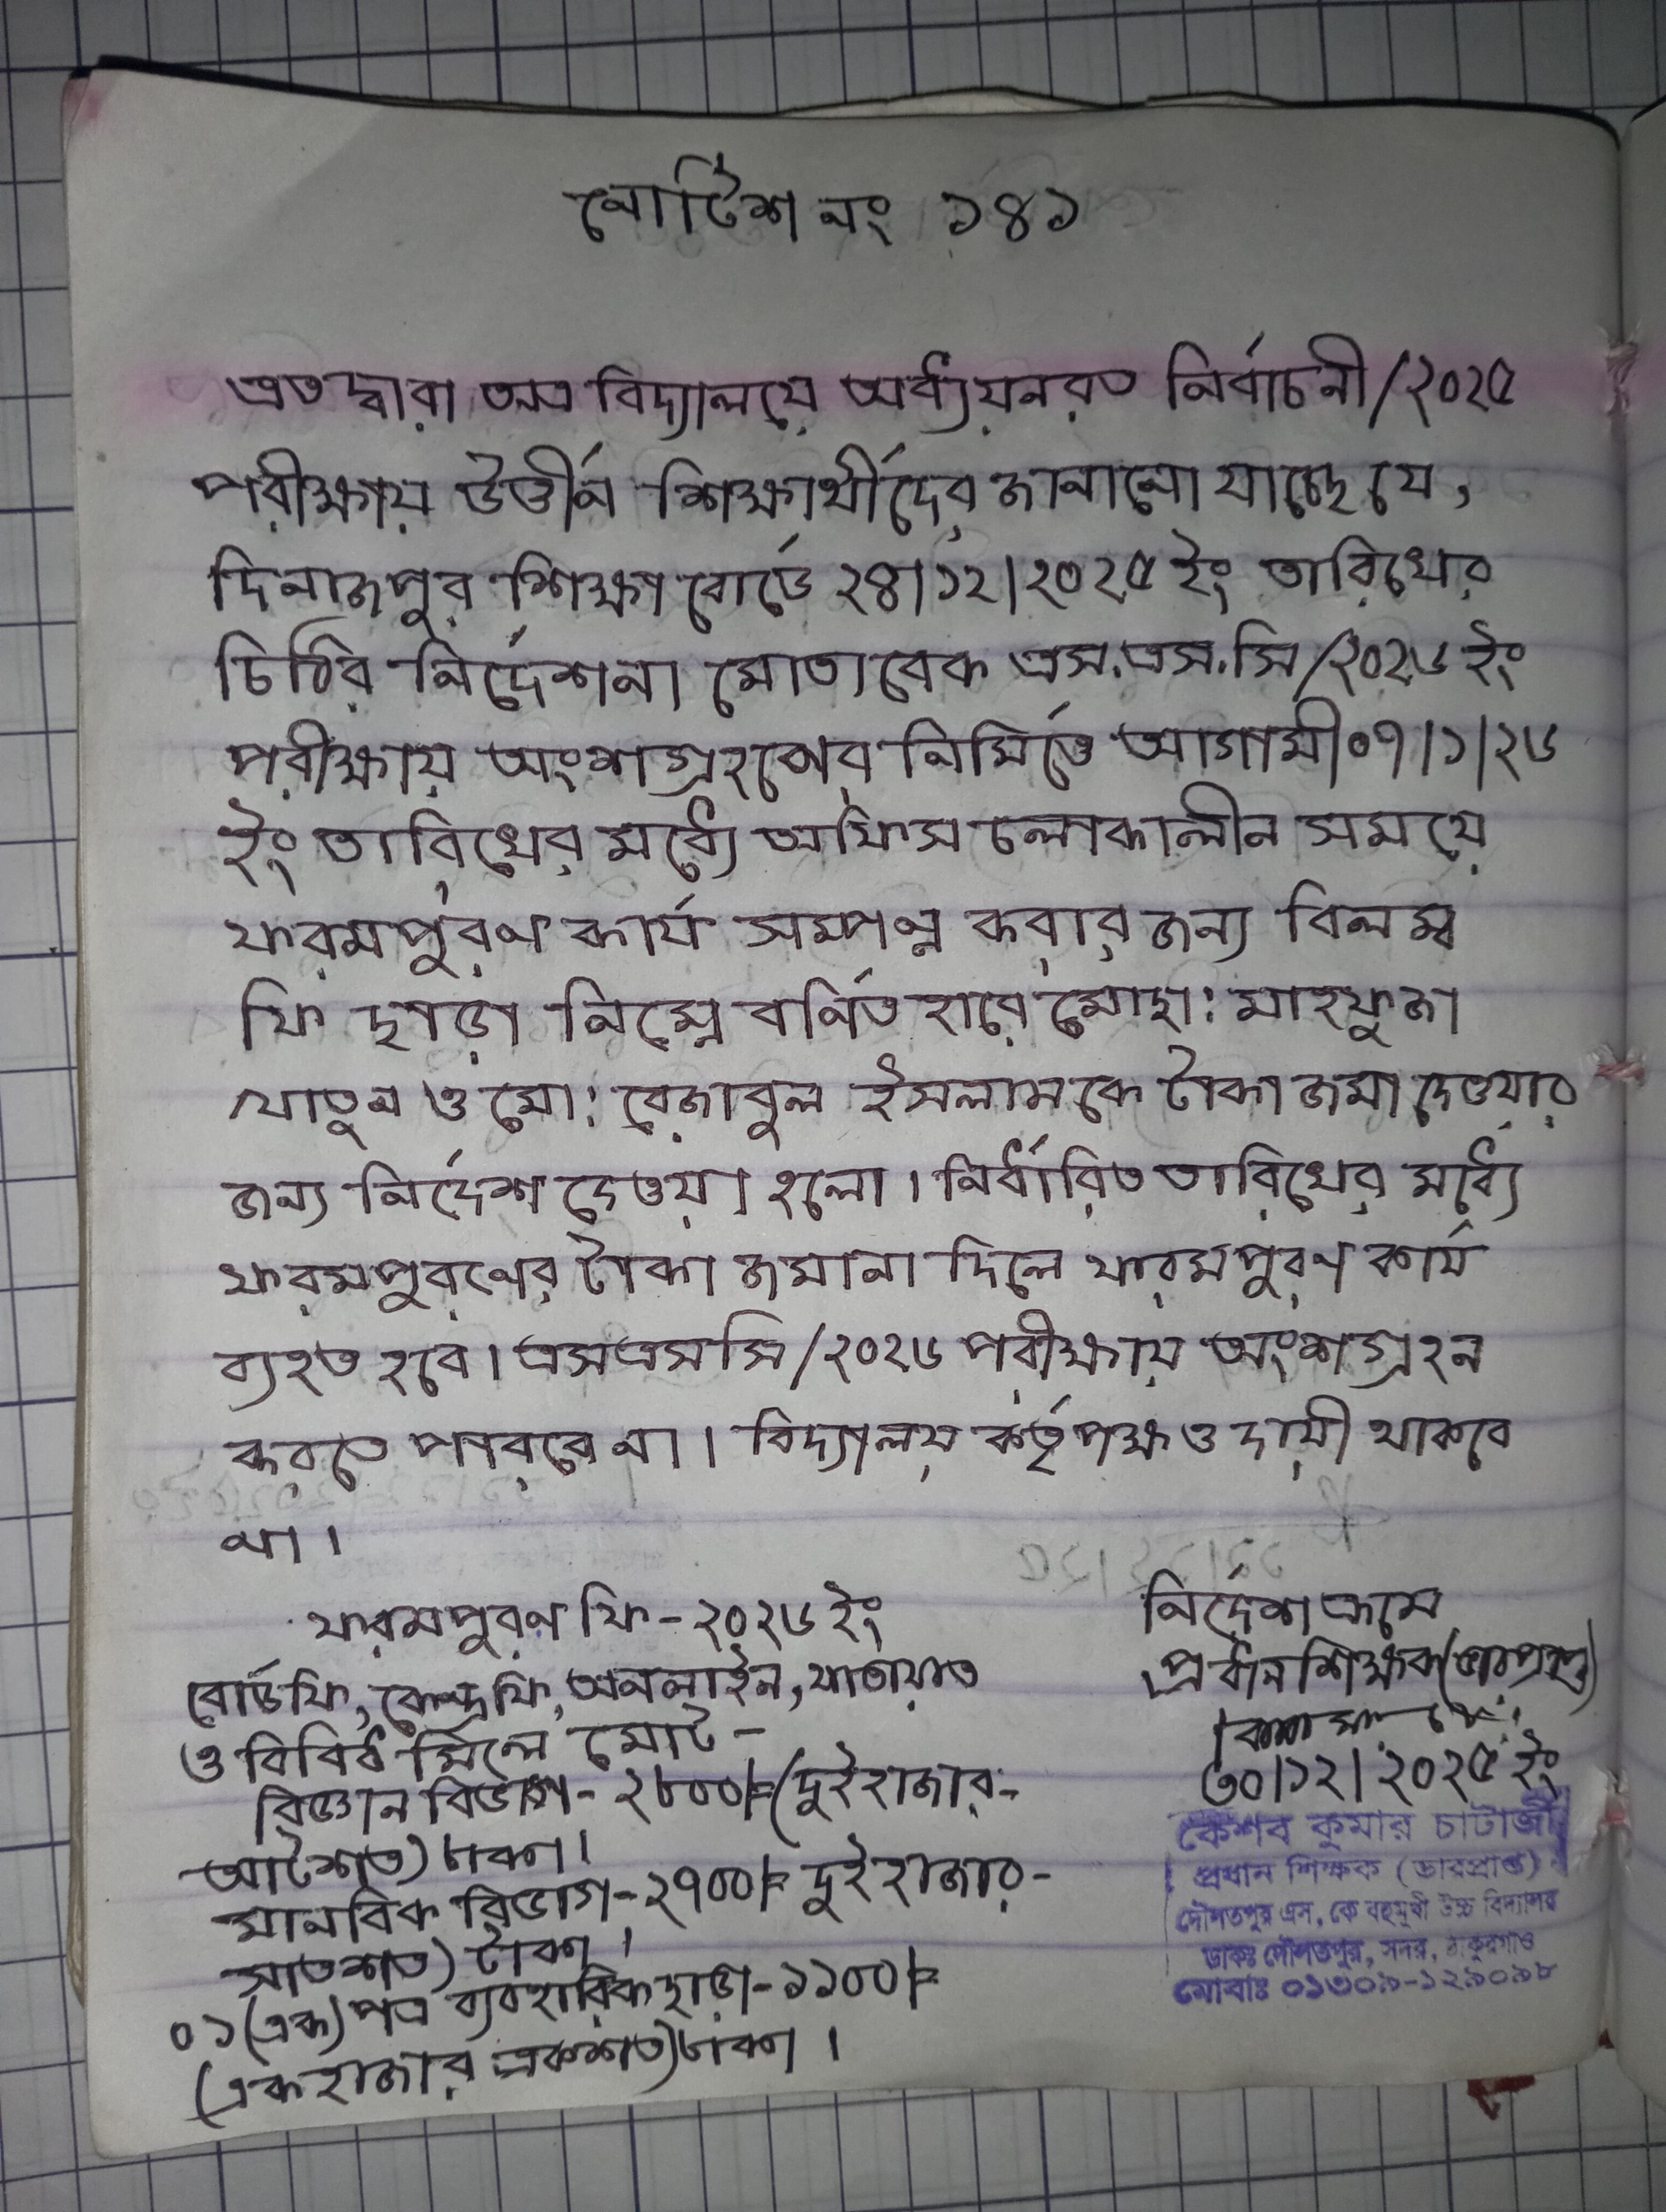 নোটিশ নং ১৪১
এতদ্বারা অত্র বিদ্যালয়ে অর্ধ্যয়নরত নির্বাচনী/২০২৫
পরীক্ষায় উত্তীর্ন শিক্ষার্থীদের জানানো যাচ্ছে যে,
দিনাজপুর শিক্ষা বোর্ডে ২৪/১২/২০২৫ ইং তারিখের
চিঠির নির্দেশনা মোতাবেক এস.এস.সি/২০২৬ ইং
পরীক্ষায় অংশগ্রহণের নিমিত্তে আগামী ০৭/১/২৬
ইং তারিখের মধ্যে অফিস চলাকালীন সময়ে
ফরমপুরণ কার্য সম্পন্ন করার জন্য বিলম্ব
ফি ছাড়া নিম্নে বর্নিত হারে মোছা: মাহফুজা
খাতুন ও মো: রেজাবুল ইসলামকে টাকা জমা দেওয়ার
জন্য নির্দেশ দেওয়া হলো। নির্ধারিত তারিখের মধ্যে
ফরমপুরণের টাকা জমা না দিলে ফরমপুরণ কার্য
ব্যহত হবে। এসএসসি/২০২৬ পরীক্ষায় অংশগ্রহন
করতে পারবে না। বিদ্যালয় কর্তৃপক্ষ ও দায়ী থাকবে
না।
ফরমপুরণ ফি-২০২৬ ইং
বোর্ডফি, কেন্দ্রফি, অনলাইন, যাতায়াত
ও বিবিধ মিলে মোট-
বিজ্ঞান বিভাগ-২৮০০/= (দুইহাজার-
আটশত) টাকা।
মানবিক বিভাগ-২৭০০/= দুইহাজার-
সাতশত) টাকা।
০১(এক) পত্র ব্যবহারিক ছাড়া-১১০০/=
(একহাজার একশত) টাকা।
নির্দেশক্রমে
প্রধান শিক্ষক (ভারপ্রাপ্ত)
৩০/১২/২০২৫ ইং
কেশব কুমার চাটার্জী
প্রধান শিক্ষক (ভারপ্রাপ্ত)
দৌলতপুর এস, কে বহুমুখী উচ্চ বিদ্যালয়
ডাকঃ দৌলতপুর, সদর, ঠাকুরগাঁও
মোবাঃ ০১৩০৯-১২৯০৯৮